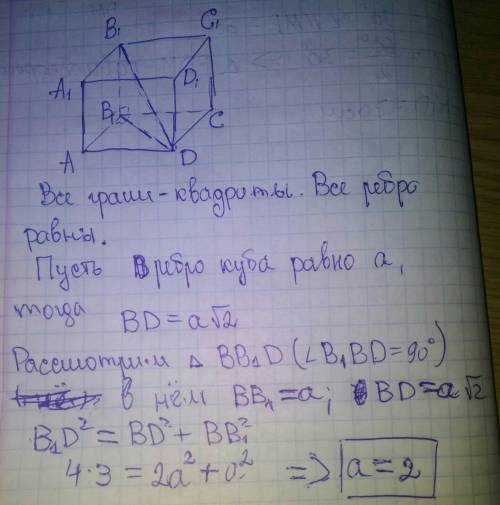 B₁
C₁
A₁
D₁
B
C
A
D
Все грани - квадраты. Все ребра
равны.
Пусть ребро куба равно a,
тогда
BD = a√2
Рассмотрим △ BB₁D (∠B₁BD = 90°)
В нём BB₁ = a; BD = a√2
B₁D² = BD² + BB₁²
4·3 = 2a² + a² => a = 2